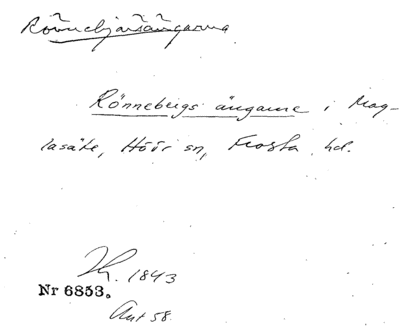 Rönnebjärsängarna
Rönnebergs ängarne i Mag-
lasäte, Höör sn, Frosta hd.
1843
Nr 6853.
Ant 58.